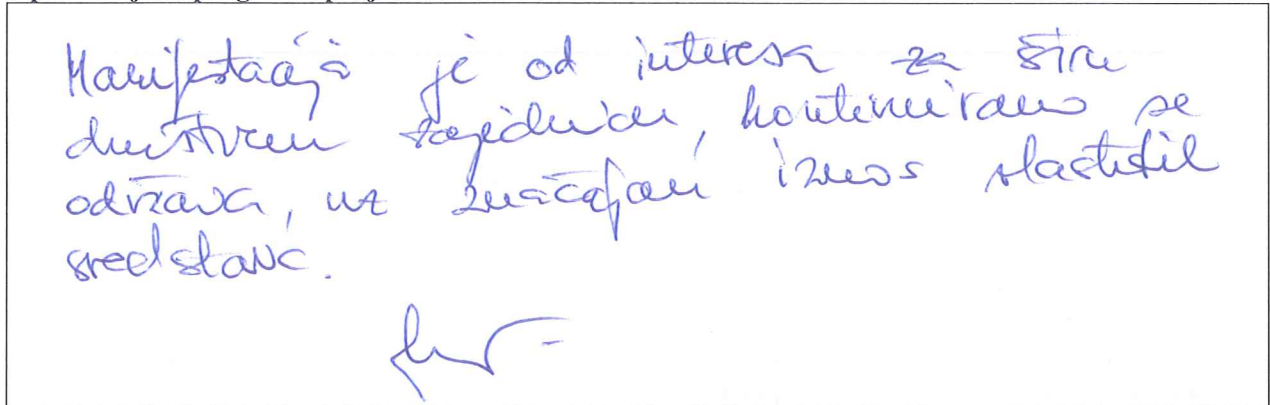 Manifestacija je od interesa za širu
društvenu zajednicu, kontinuirano se
održava, uz značajan iznos vlastitih
sredstava.